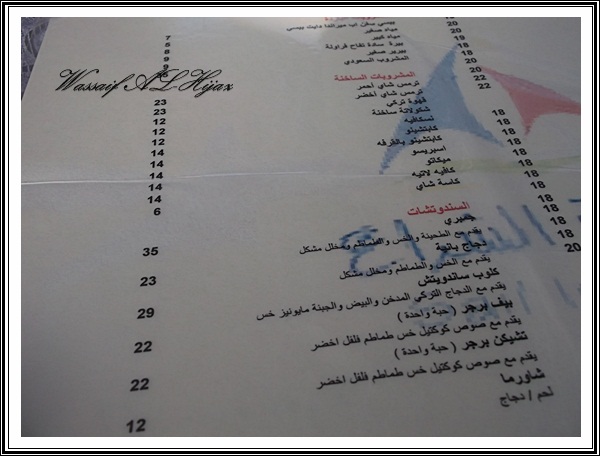 بيبسي سفن اب ميراندا دايت بيبسي
20
مياه صغير
20
7
مياه كبير
19
5
بيرة سادة تفاح فراولة
18
8
بيرير صغير
18
9
المشروب السعودي
20
9
Wassaif AL Hijaz
المشروبات الساخنة
20
ترمس شاي أحمر
22
23
ترمس شاي أخضر
22
23
قهوة تركي
12
شكولاتة ساخنة
12
نسكافيه
18
12
كابتشينو
18
14
كابتشينو بالقرفه
18
14
اسبريسو
18
14
ميكاتو
18
14
كافيه لاتيه
18
6
كاسة شاي
18
السندوتشات
18
جمبري
18
35
يقدم مع الطحينة والخس والطماطم ومخلل مشكل
دجاج بانية
20
23
يقدم مع الخس والطماطم ومخلل مشكل
كلوب ساندويتش
29
يقدم مع الدجاج التركي المدخن والبيض والجبنة مايونيز خس
بيف برجر ( حبة واحدة )
22
يقدم مع صوص كوكتيل خس طماطم فلفل اخضر
تشيكن برجر ( حبة واحدة )
22
يقدم مع صوص كوكتيل خس طماطم فلفل اخضر
شاورما
12
لحم / دجاج